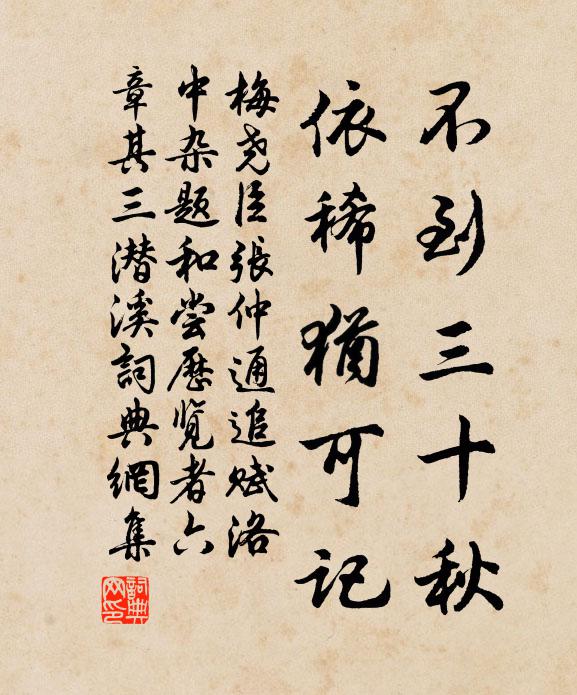 不到三十秋
依稀猶可記
梅尧臣張仲通追赋洛
中杂题和尝歷览者六
章其三潜溪詞典網集
詞典网印